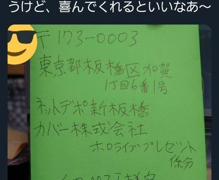 うけど、喜んでくれるといいなあ〜
〒173-0003
東京都板橋区加賀
1丁目6番1号
ネットデポ新板橋
カバー株式会社
ホロライブプレゼント
係分